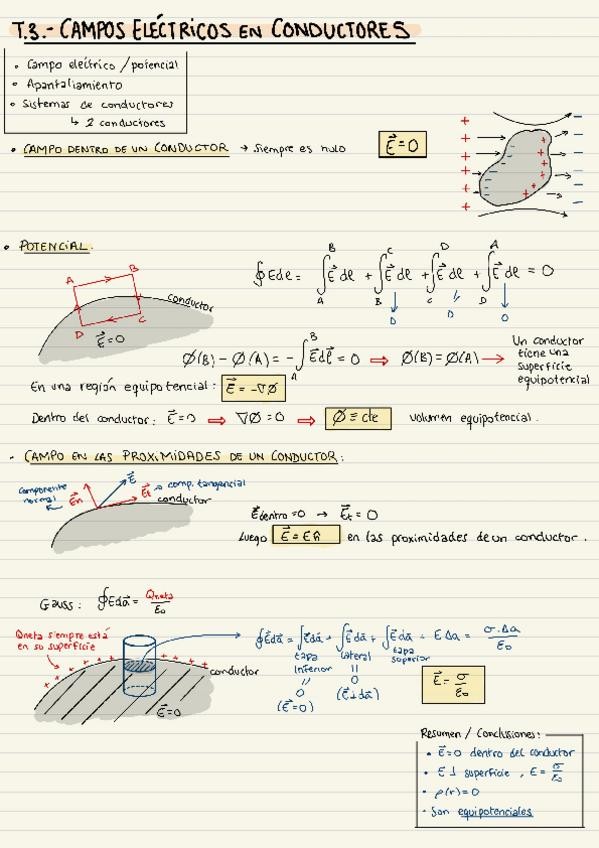 T.3.- CAMPOS ELÉCTRICOS EN CONDUCTORES
• Campo eléctrico / potencial
• Apantallamiento
• Sistemas de conductores
↳ 2 conductores
• CAMPO DENTRO DE UN CONDUCTOR → Siempre es nulo E⃗=0
• POTENCIAL.
A B C D
conductor
E⃗=0
∮Edl = ∫_A^B E⃗dl + ∫_B^C E⃗dl + ∫_C^D E⃗dl + ∫_D^A E⃗dl = 0
0 0 0
Ø(B) - Ø(A) = -∫_A^B E⃗dl⃗ = 0 ⇒ Ø(B) = Ø(A) →
Un conductor
tiene una
superficie
equipotencial
En una región equipotencial: E⃗ = -∇Ø
Dentro del conductor: E⃗=0 ⇒ ∇Ø = 0 ⇒ Ø ≡ cte volumen equipotencial.
- CAMPO EN LAS PROXIMIDADES DE UN CONDUCTOR:
componente
normal
E⃗n E⃗ E⃗t → comp. tangencial
conductor
E⃗dentro=0 → E⃗t = 0
Luego E⃗ = E n̂ en las proximidades de un conductor.
Gauss: ∮E⃗da⃗ = Qneta/ε₀
Qneta siempre está
en su superficie
conductor
E⃗=0
∮E⃗da⃗ = ∫E⃗da⃗ + ∫E⃗da⃗ + ∫E⃗da⃗ = E Δa = σ·Δa/ε₀
tapa inferior lateral tapa superior
0 0
(E⃗=0) (E⃗⊥da⃗)
E⃗ = σ/ε₀
Resumen / Conclusiones:
• E⃗=0 dentro del conductor
• E ⊥ superficie, E = σ/ε₀
• ρ(r) = 0
· Son equipotenciales